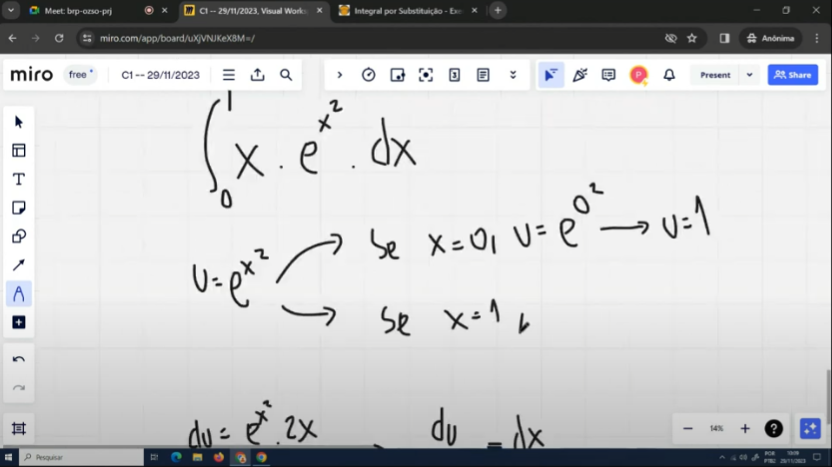 Meet: brp-ozso-prj
C1 -- 29/11/2023, Visual Work
Integral por Substituição - Exe
miro.com/app/board/uXjVNJKeX8M=/
Anônima
miro free C1 -- 29/11/2023 Present Share
∫₀¹ x . e^x² . dx
Se x=0, U= e^0² → U=1
U= e^x²
Se x=1,
du = e^x² . 2x du = dx
14%
Pesquisar
POR 10:09
PTB2 29/11/2023